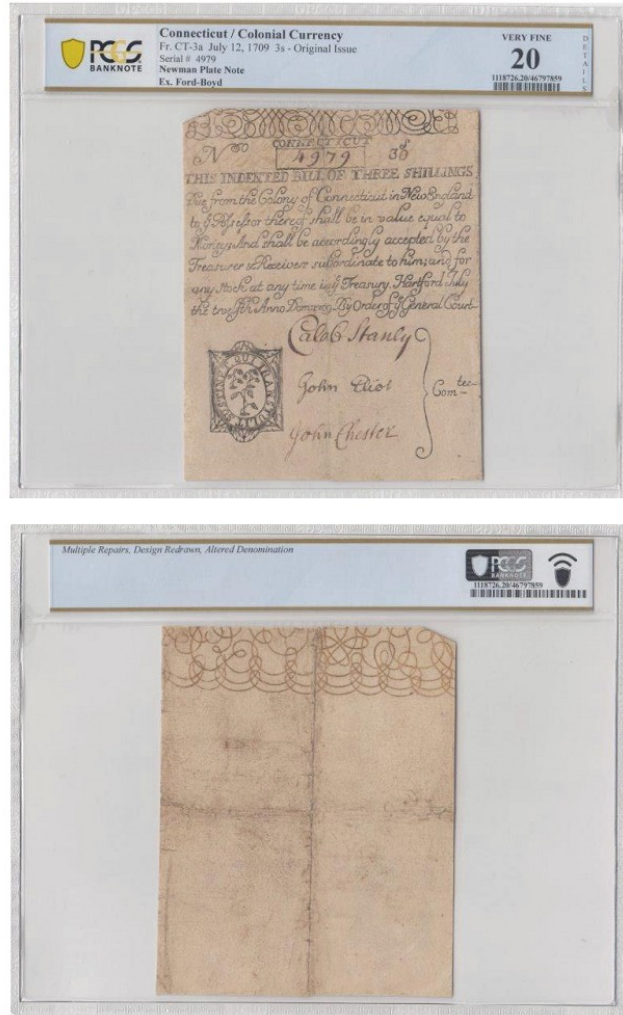 Connecticut / Colonial Currency
Fr. CT-3a July 12, 1709 3s - Original Issue
Serial # 4979
Newman Plate Note
Ex. Ford-Boyd
PCGS
BANKNOTE
VERY FINE
20
1118726.20/46797859
DETAILS
CONNECTICUT
No 4979 3s
THIS INDENTED BILL OF THREE SHILLINGS
Due from the Colony of Connecticut in New England
to ye Possessor thereof shall be in value equal to
Money & And shall be accordingly accepted by the
Treasurer & Receivers subordinate to him; and for
any Stock at any time in ye Treasury. Hartford July
the Anno Dom: 1709. By Order of ye General Court
Caleb Stanly
John Eliot
John Chester
Comtee
SUSTINET QUI TRANSTULIT
Multiple Repairs, Design Redrawn, Altered Denomination
PCGS
BANKNOTE
1118726.20/46797859